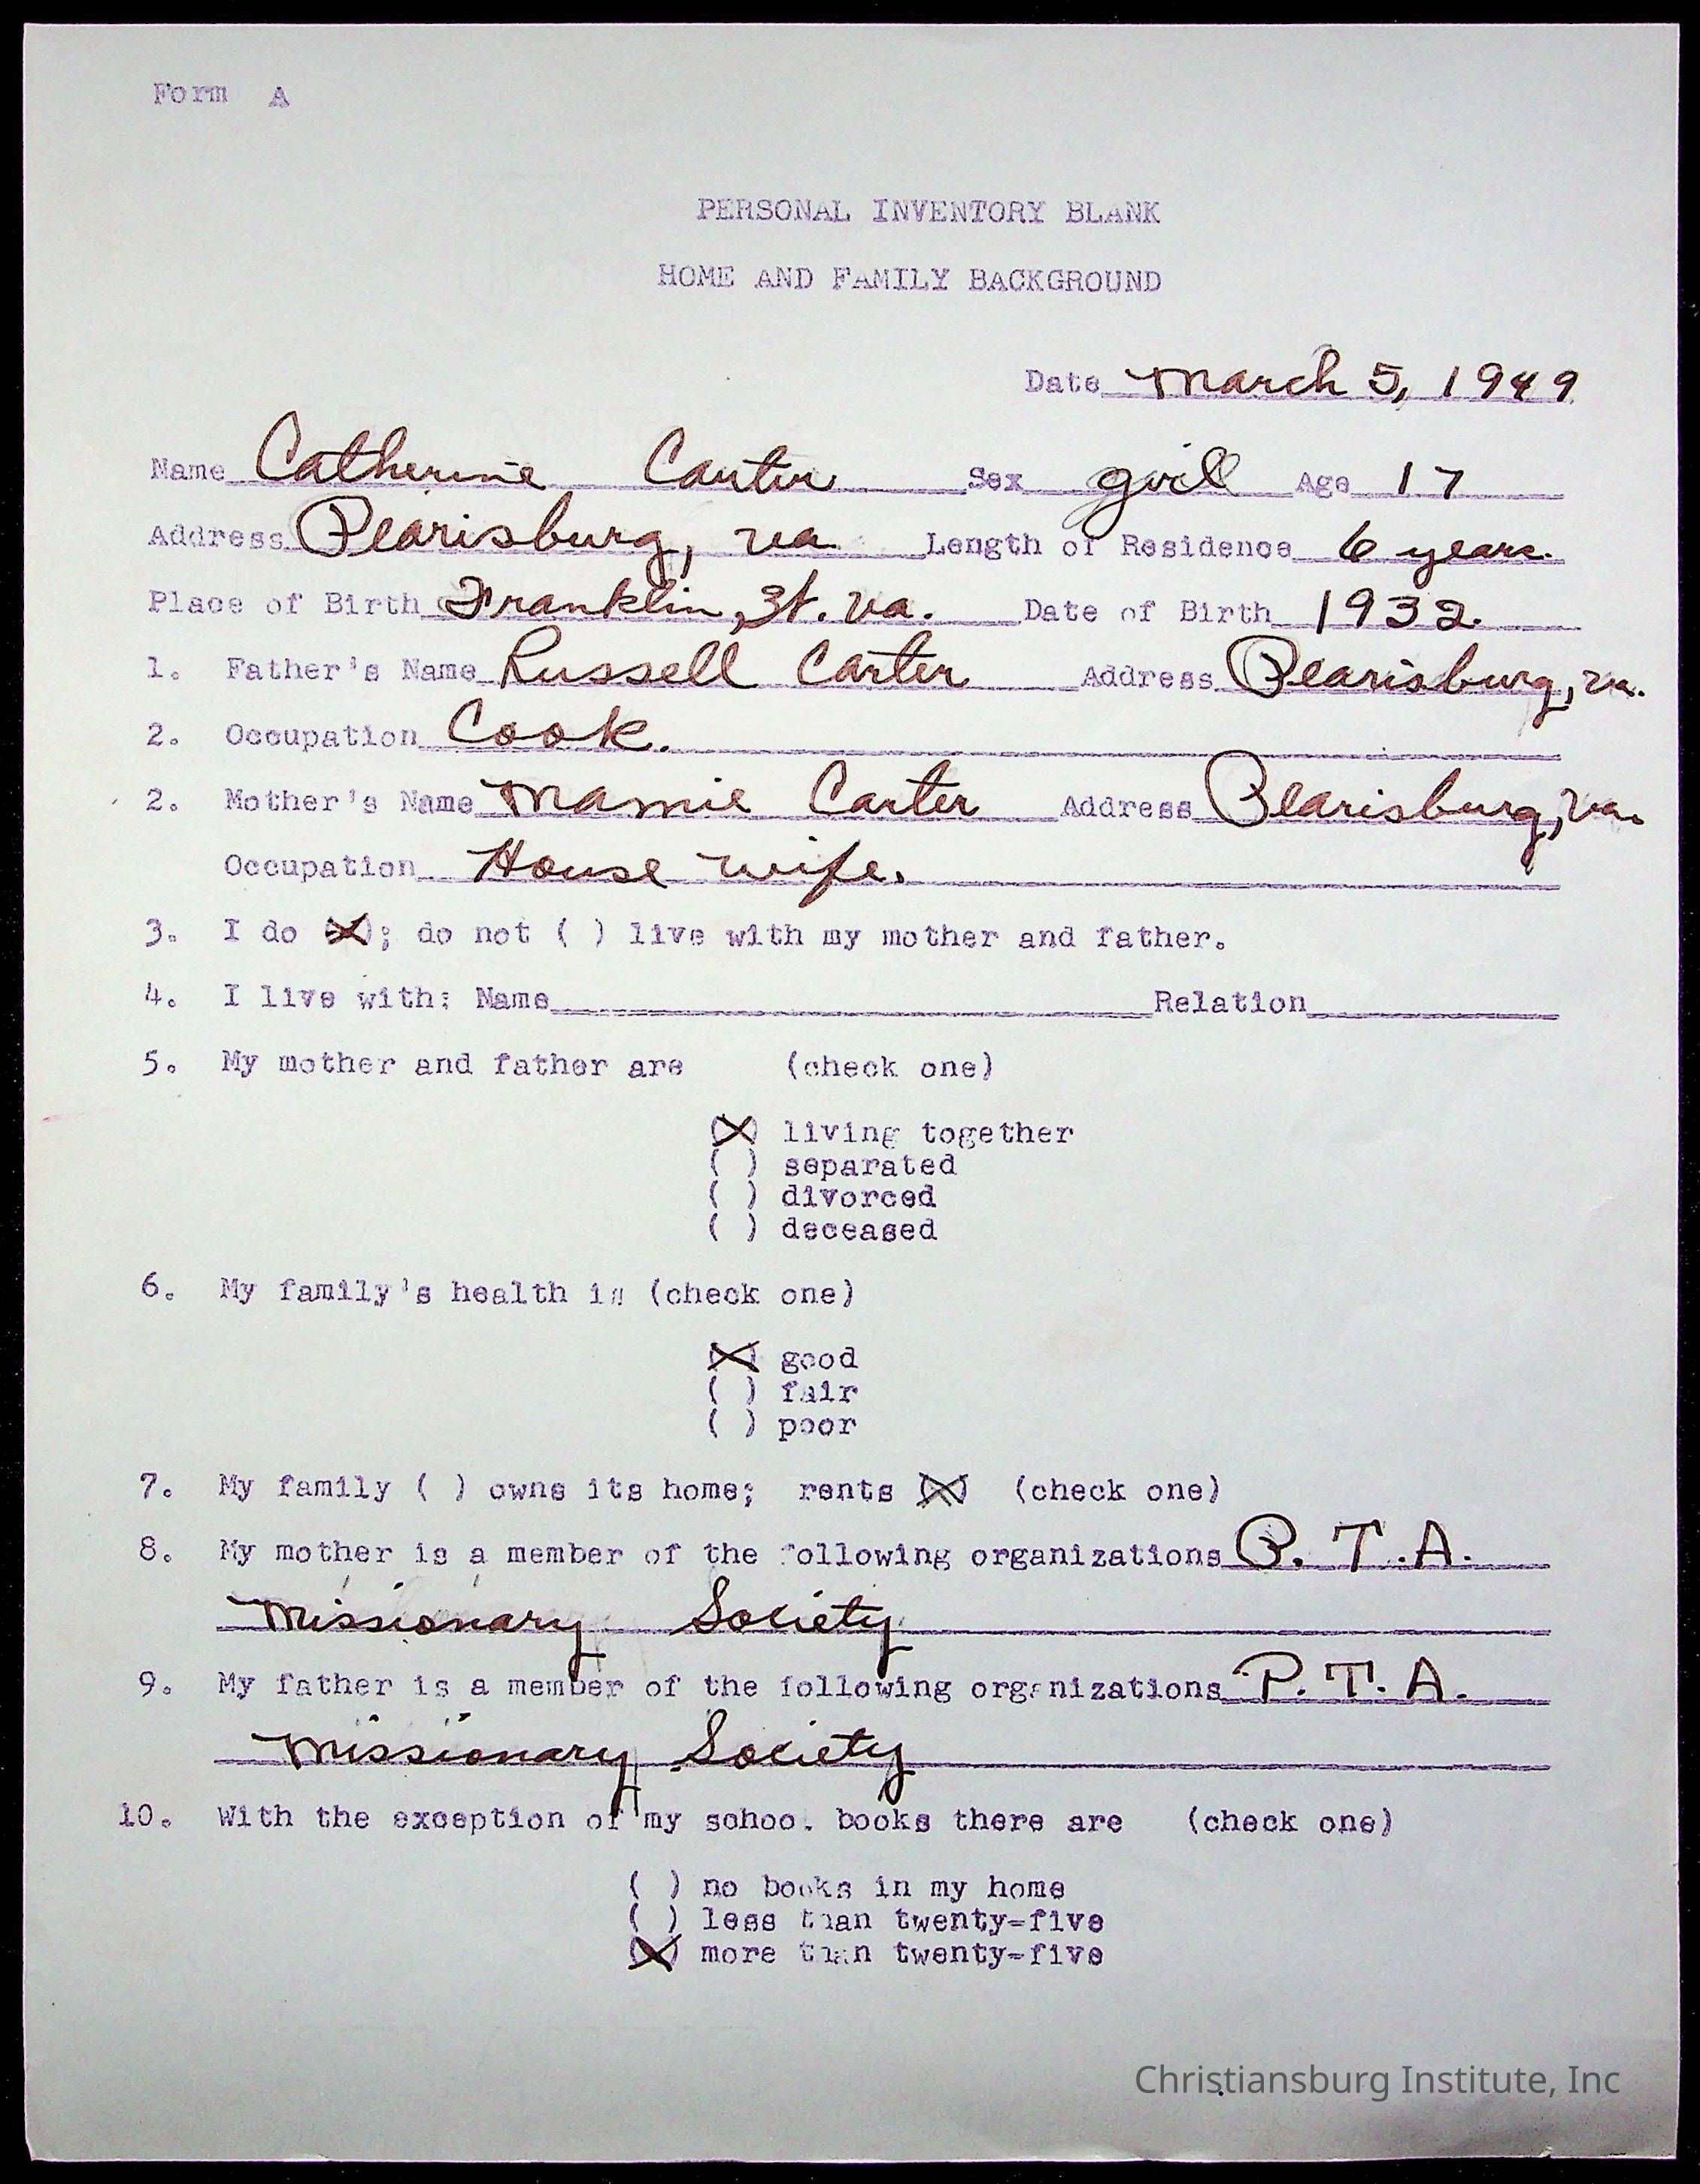 Form A
PERSONAL INVENTORY BLANK
HOME AND FAMILY BACKGROUND
Date March 5, 1949
Name Catherine Carter Sex girl Age 17
Address Pearisburg, Va Length of Residence 6 years.
Place of Birth Franklin, St. Va. Date of Birth 1932.
1. Father's Name Russell Carter Address Pearisburg, Va.
2. Occupation Cook.
2. Mother's Name Mamie Carter Address Pearisburg, Va.
Occupation House wife.
3. I do (X); do not ( ) live with my mother and father.
4. I live with: Name Relation
5. My mother and father are (check one)
(X) living together
( ) separated
( ) divorced
( ) deceased
6. My family's health is (check one)
(X) good
( ) fair
( ) poor
7. My family ( ) owns its home; rents (X) (check one)
8. My mother is a member of the following organizations P. T. A.
Missionary Society
9. My father is a member of the following organizations P. T. A.
Missionary Society
10. With the exception of my school books there are (check one)
( ) no books in my home
( ) less than twenty-five
(X) more than twenty-five
Christiansburg Institute, Inc